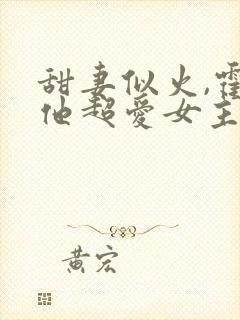 甜妻似火,霍
他超爱女主
黄宏